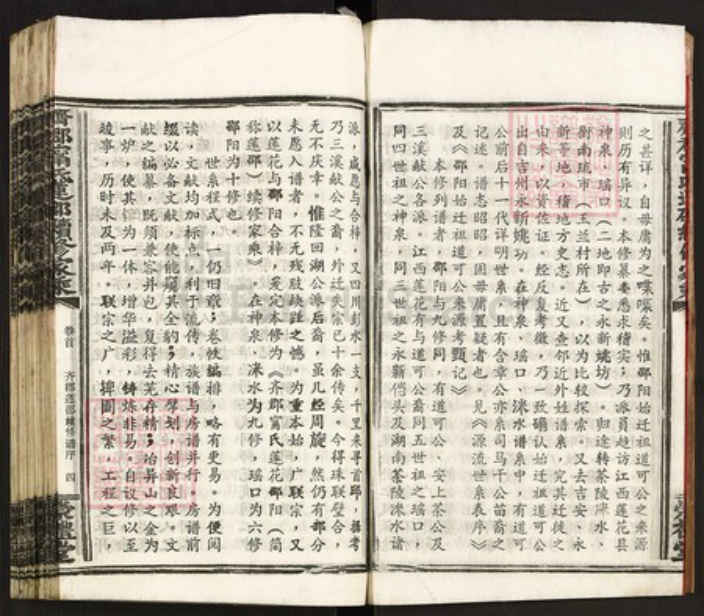 之甚详，自毋庸为之喋喋矣。惟邵阳始迁祖道可公之来源
则历有异议。本修纂委悉求稽实；乃派员趋访江西莲花县
神泉，瑶口（二地即古之永新姚坊）。归途转茶陵洣水、
衡南瑞市（玉兰村所在），以为比较探索。又去吉安、永
新等地，稽地方史志。近又查邻近外姓谱系，究其迁徙之
由来，以资佐证。经反复考徵，乃一致确认始迁祖道可公
出自吉州永新姚功。在神泉、瑶口、洣水谱系中，有道可
公前后十一代详明世系；且有含章公亦系司马干公苗裔之
记述。谱志昭昭，固毋庸置疑者也。见《源流世系表序》
及《邵阳始迁祖道可公来源考甄记》
本修列谱者，邵阳与九修同，有道可公、安上茶公及
三溪献公各派。江西莲花有与道可公裔同五世祖之瑶口；
同四世祖之神泉，同三世祖之永新 头及湖南茶陵洣水诸
派，咸愿与合梓。又四川彭水一支，千里来寻首邱，据考
乃三溪献公之裔，外迁失宗已十余传矣。今得珠联璧合，
无不庆幸。惟隆回湖公派后裔，虽几经周旋，然仍有部分
未愿入谱者，不无残肢缺跸之憾。为重本始，广联宗，又
以莲花与邵阳合梓，爰定本修为《齐郡甯氏莲花邵阳（简
称莲邵）续修家乘》。在神泉、洣水为九修，瑶口为六修
邵阳为十修也。
世系程式，一仍旧章；卷帙编排，略有更易。为便阅
读，文献均加标点，利于流传，族谱与房谱并行，房谱前
缀以必备文献，使能窥其全豹；精心擘划，创新良艰。文
献之编纂，既须兼容并包，复得去芜存精；冶异山之金为
一炉，使其 为一体，增华溢彩，铸炼非易。自议修以至
竣事，历时未及两年。联宗之广，卑图之繁，工程之巨，
卷首
齐郡莲邵续修谱序
四